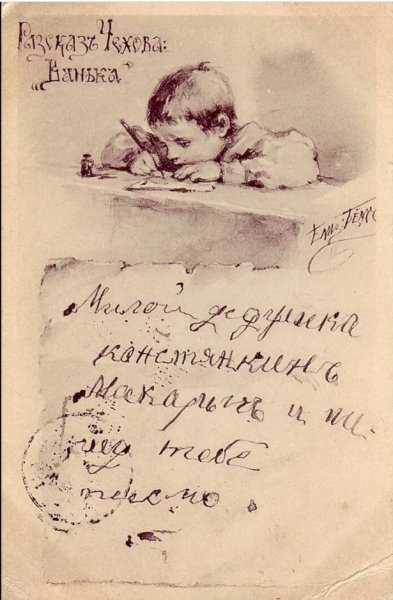 Разсказъ Чехова:
„Ванька"
Елис. Бёмъ
Милой дедушка
канстянкинъ
Макарычъ и пи-
шу тебе
писмо.